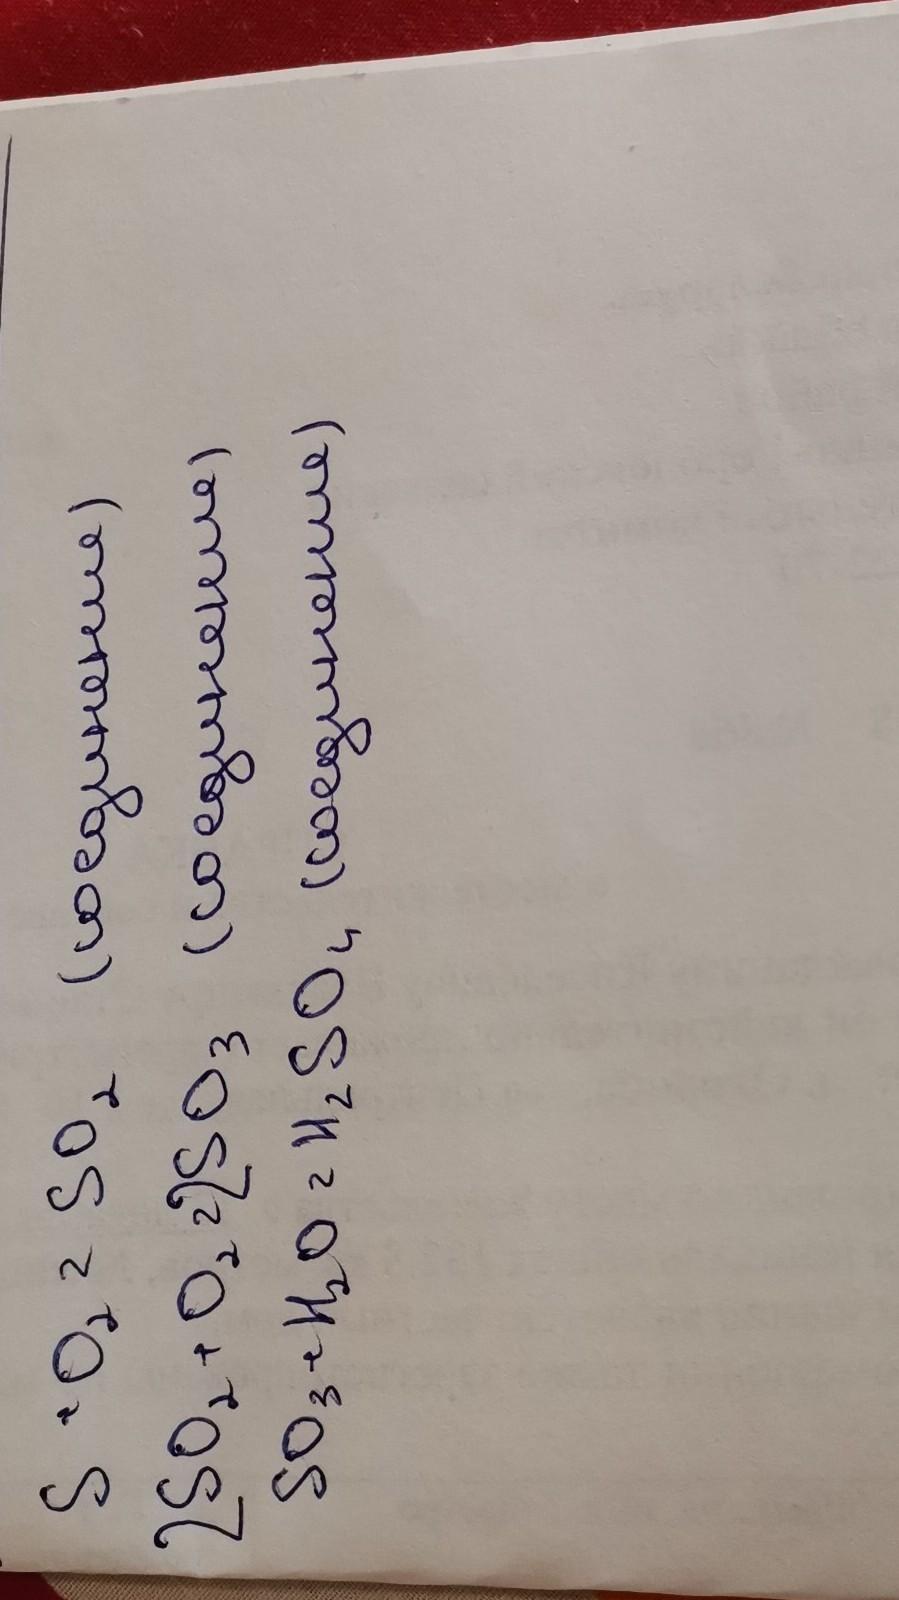 S + O₂ = SO₂ (соединение)
2SO₂ + O₂ = 2SO₃ (соединение)
SO₃ + H₂O = H₂SO₄ (соединение)